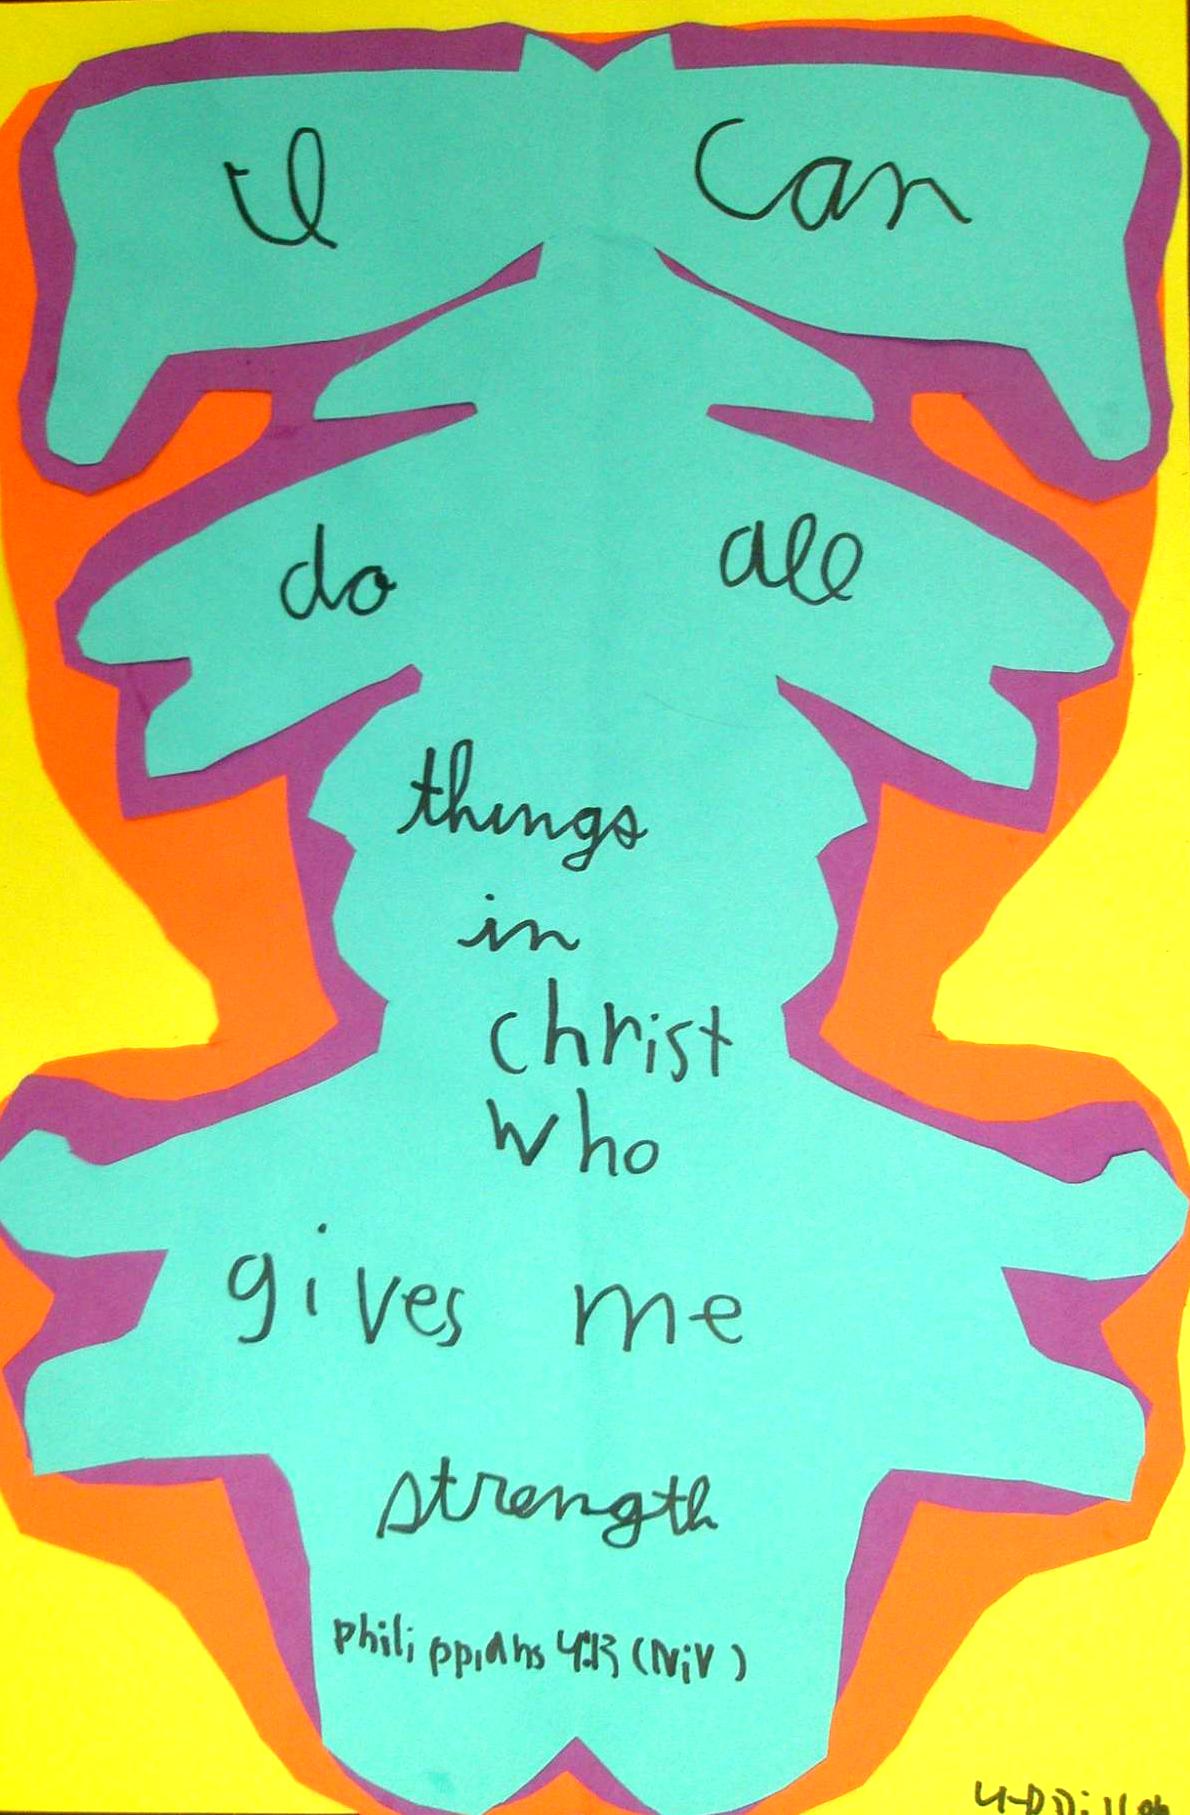 I can
do all
things
in
christ
who
gives me
strength
philippians 4:13 (NiV)